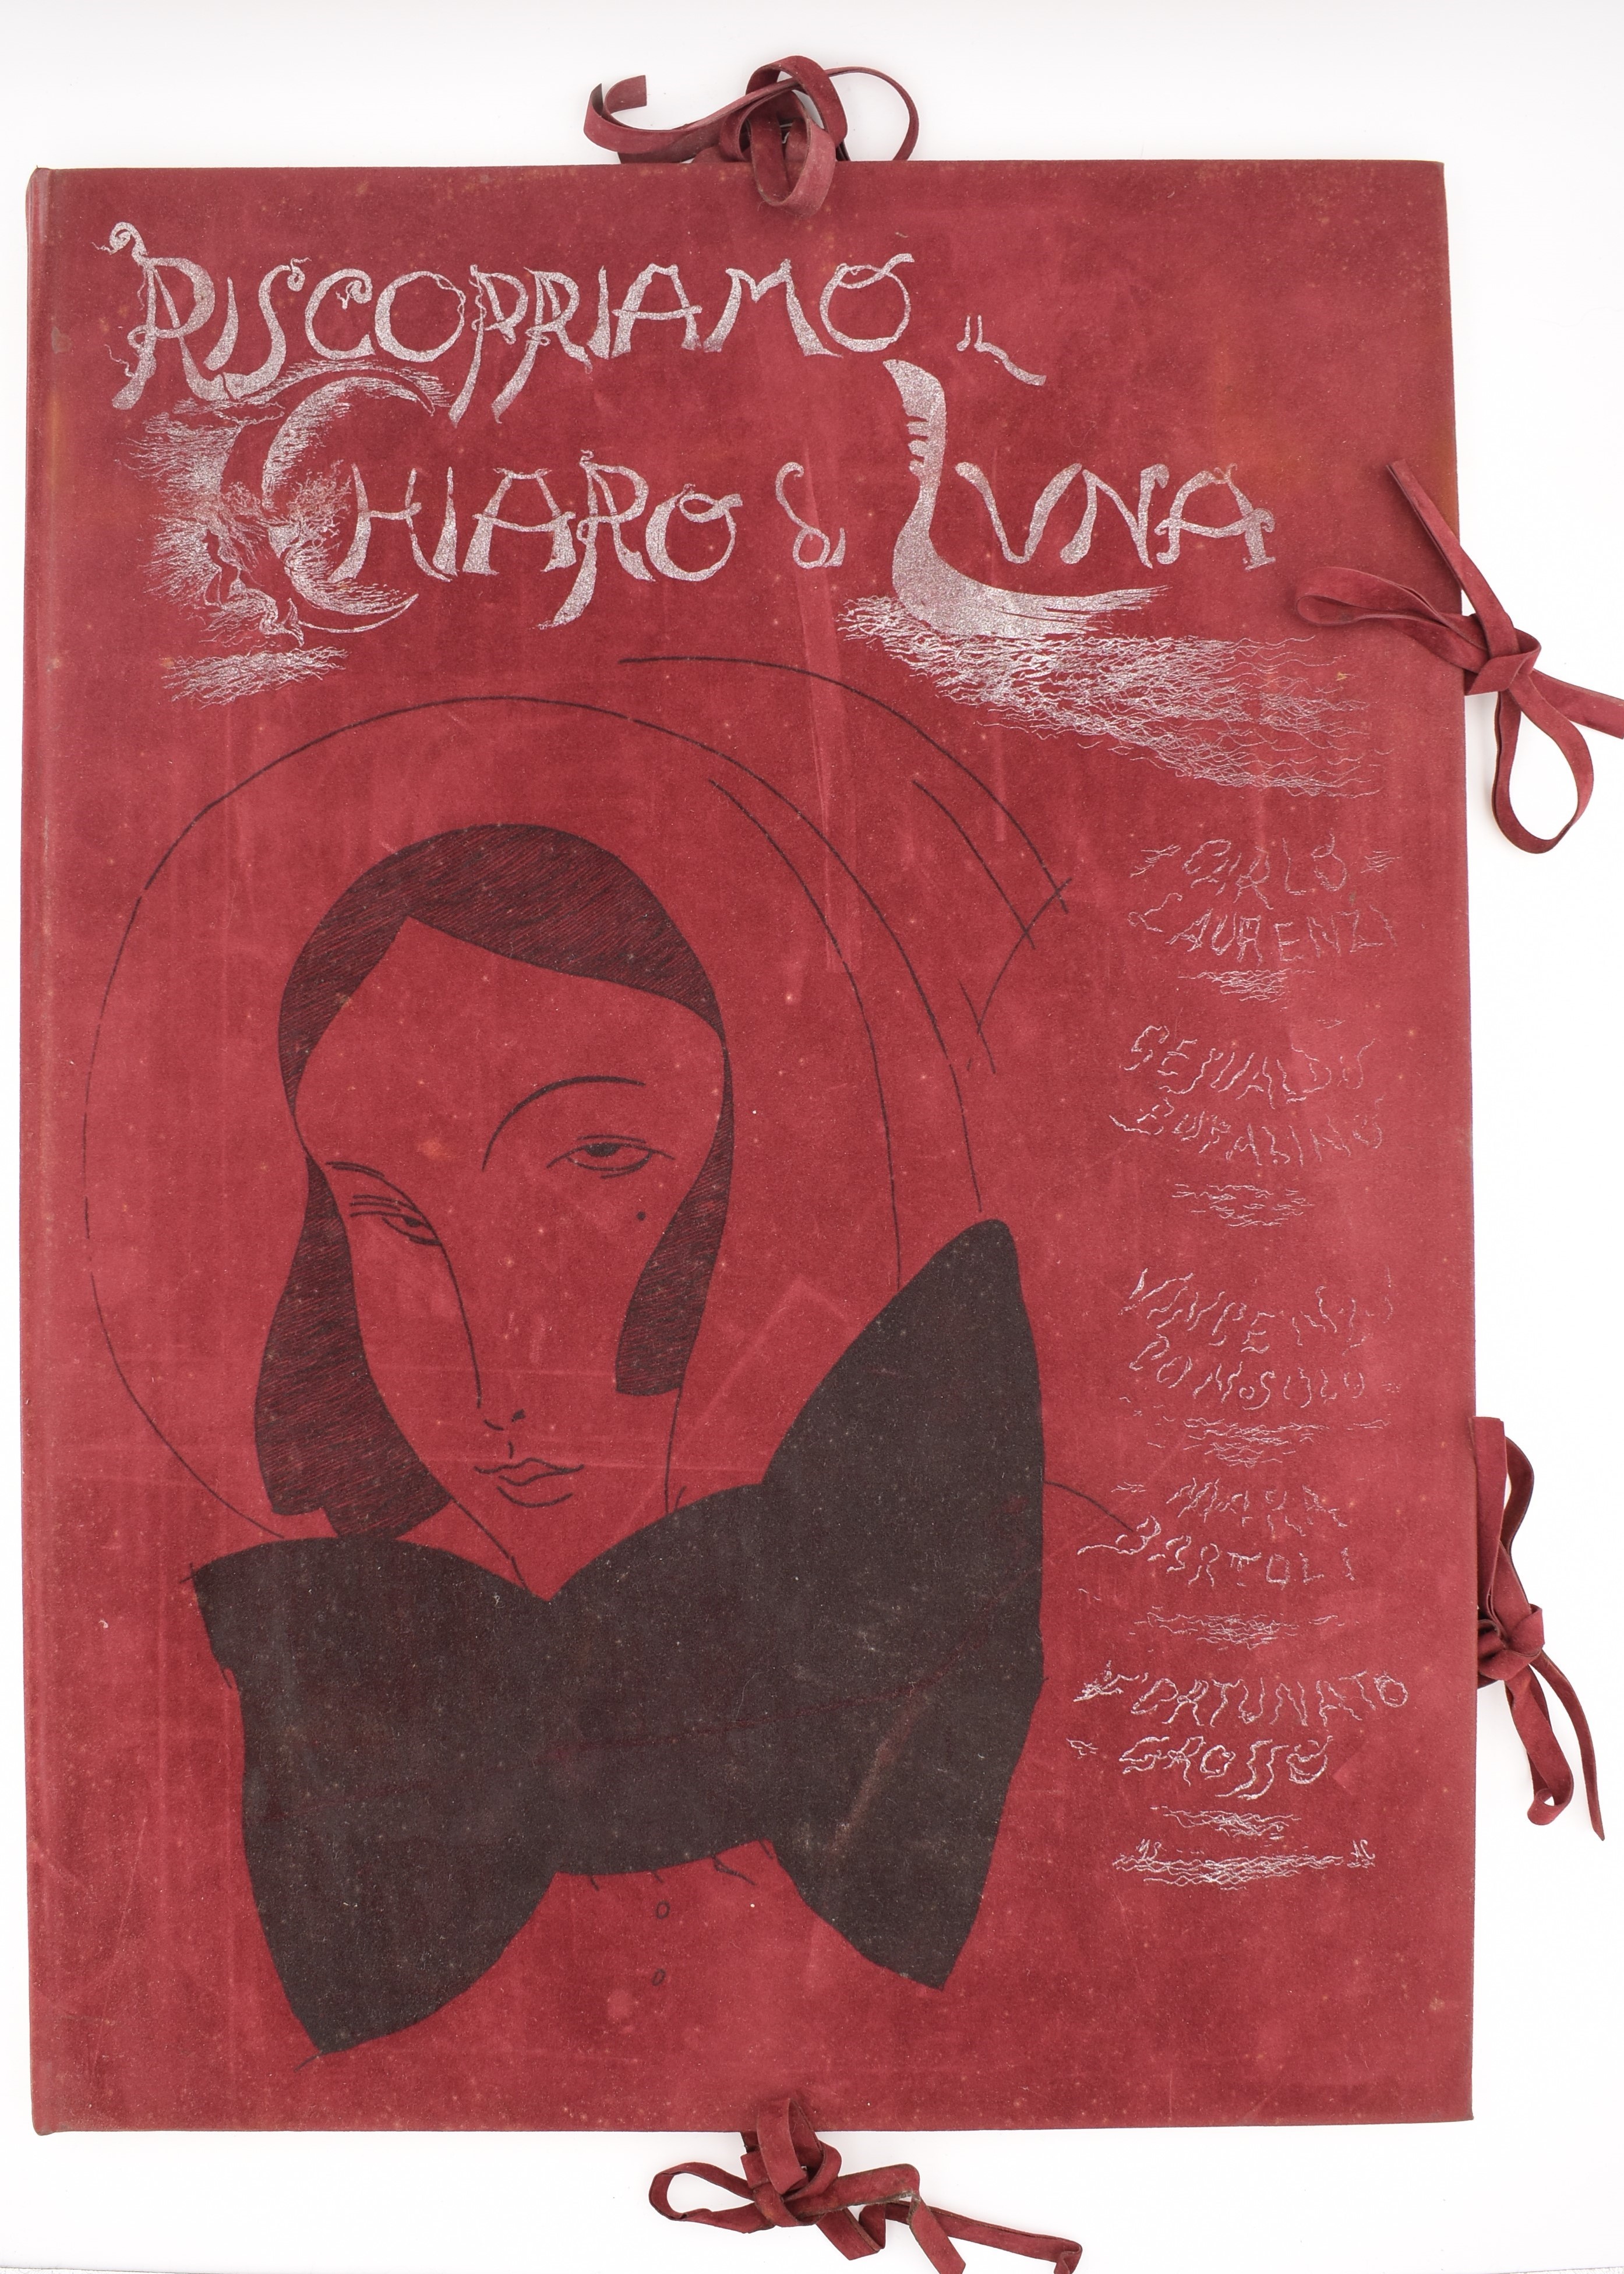 RISCOPRIAMO IL
CHIARO di LUNA
CARLO
LAURENZI
GESUALDO
BUFALINO
VINCENZO
CONSOLO
BARTOLI
FORTUNATO
GROSSO